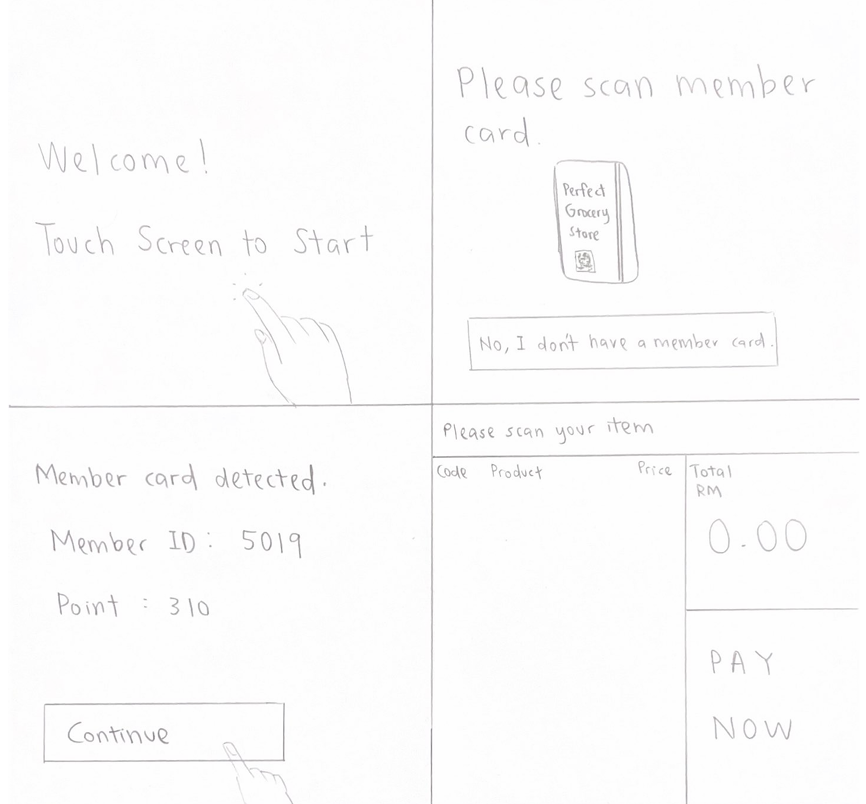 Welcome!
Touch Screen to Start
Please scan member
card.
Perfect
Grocery
Store
No, I don't have a member card.
Member card detected.
Member ID: 5019
Point : 310
Continue
Please scan your item
Code Product Price
Total
RM
0.00
PAY
NOW